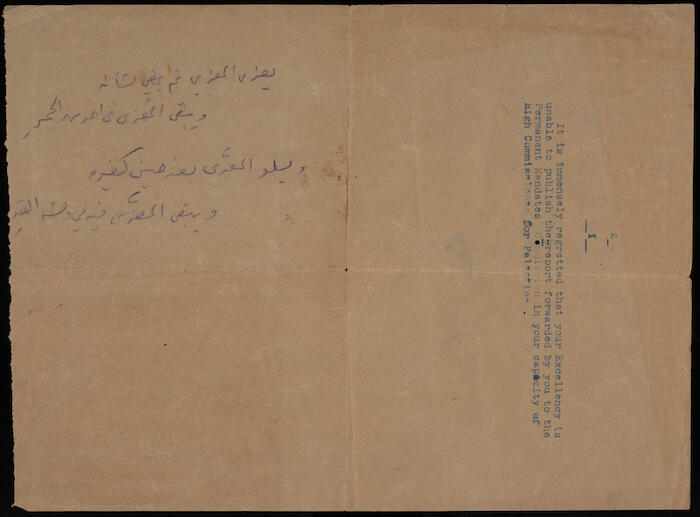 يعزى المعزي ثم يمضي لشأنه
ويبقى المُعزى في احر من الجمرِ
ويسلو المعزَّى بعد حين كغيره
ويبقى المعزَّى فيه في وحشة القبرِ
It is immensely regretted that your Excellency is
unable to publish the report forwarded by you to the
Permanent Mandates in your capacity of
High Commissioner for Palestine